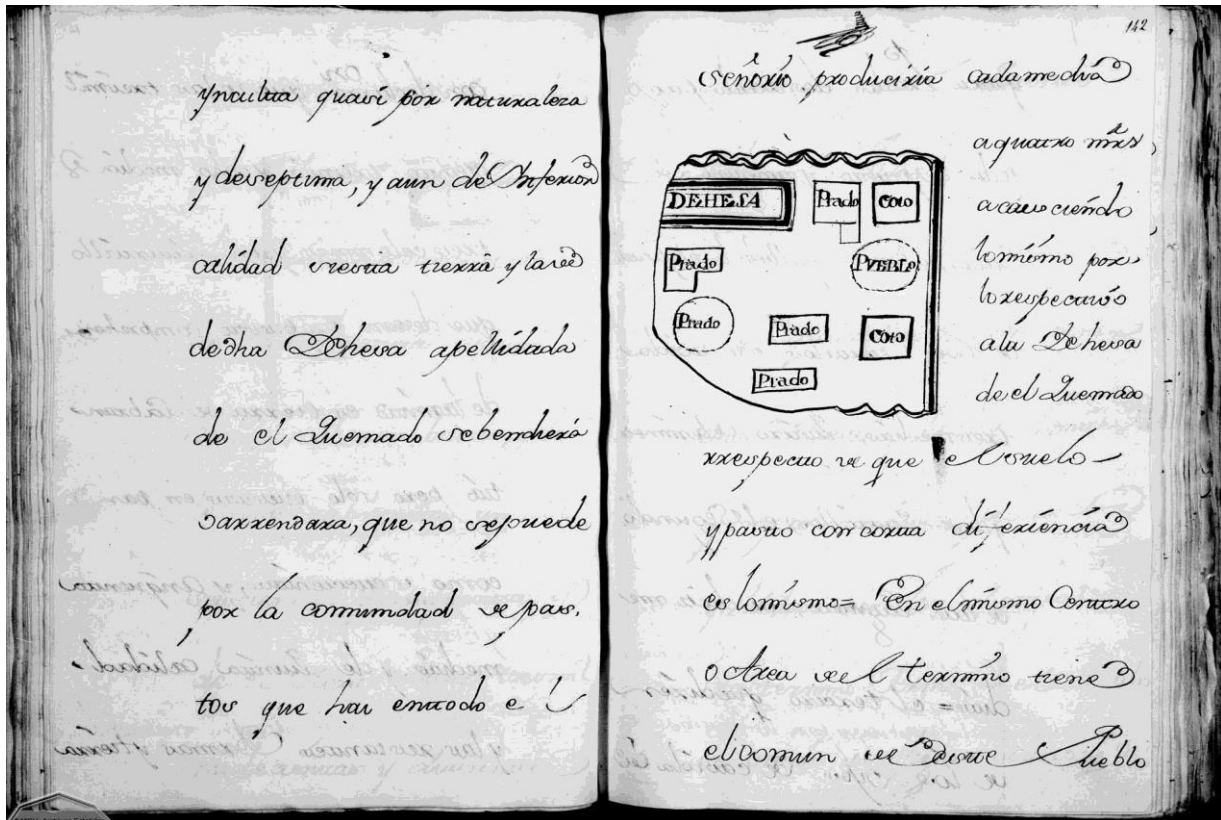 ynculta quasi por naturaleza
y deseptima, y aun de Ynferior
calidad desta tierra y la de
dedha Dehesa apellidada
de el Quemado sebenderá
o arrendara, que no sepuede
por la comunidad de pas.
tos que hai én todo e l
142
señorio produciria cadamedia
a quatro mrs
DEHESA
Prado
Coto
Prado
PVEBLO
Prado
Prado
Coto
Prado
lo mismo por
lo respectivo
a la Dehesa
de el Quemado
rrespecto de que el suelo
y pasto con corta diferiencia
es lo mismo = En el mismo Centro
o Area de el termino tiene
el comun de Deste Pueblo